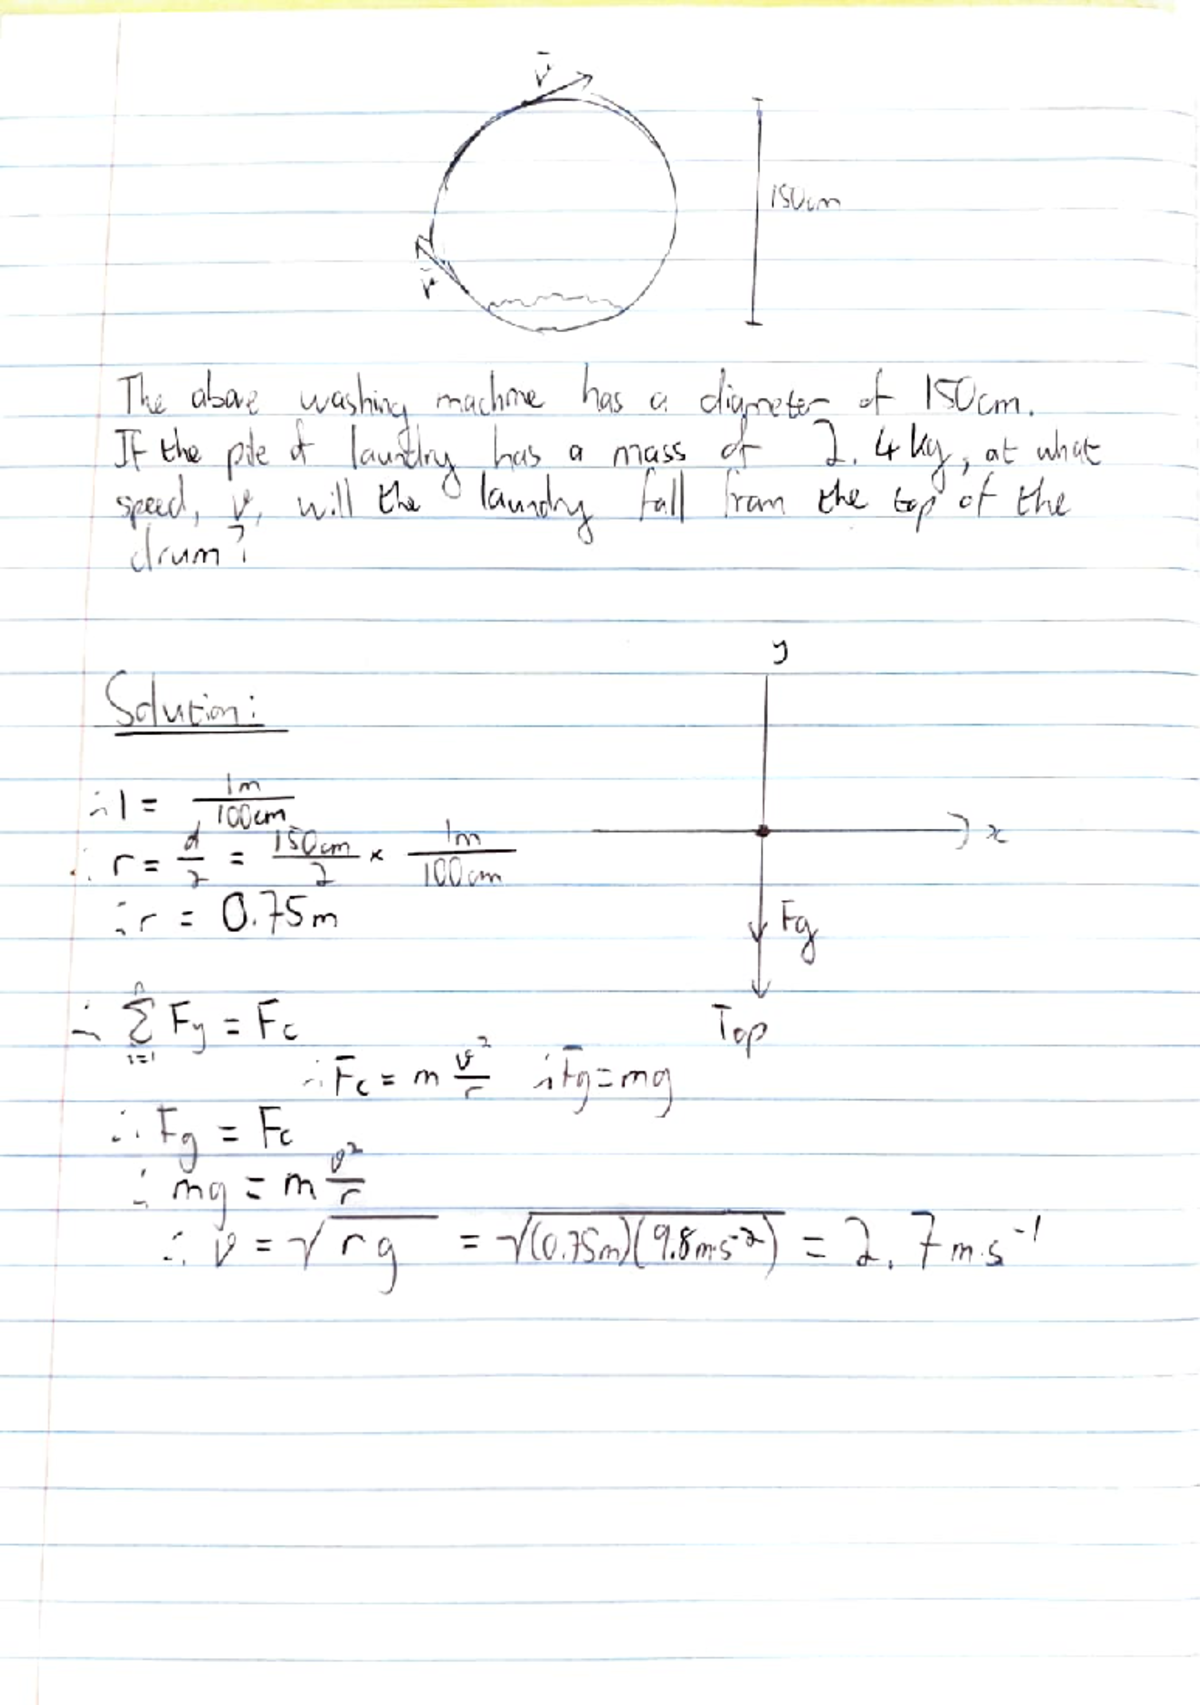 v̄
150cm
v̄
The above washing machine has a diameter of 150cm.
If the pile of laundry has a mass of 2.4kg, at what
speed, v, will the laundry fall from the top of the
drum?
y
Solution:
∴ 1 = 1m/100cm
x
∴ r = d/2 = 150cm/2 × 1m/100cm
∴ r = 0.75m
Fg
Top
∴ Σⁿᵢ₌₁ Fy = Fc
∴ Fc = m v²/r ∴ Fg = mg
∴ Fg = Fc
∴ mg = m v²/r
∴ v = √rg = √(0.75m)(9.8m·s⁻²) = 2.7m·s⁻¹